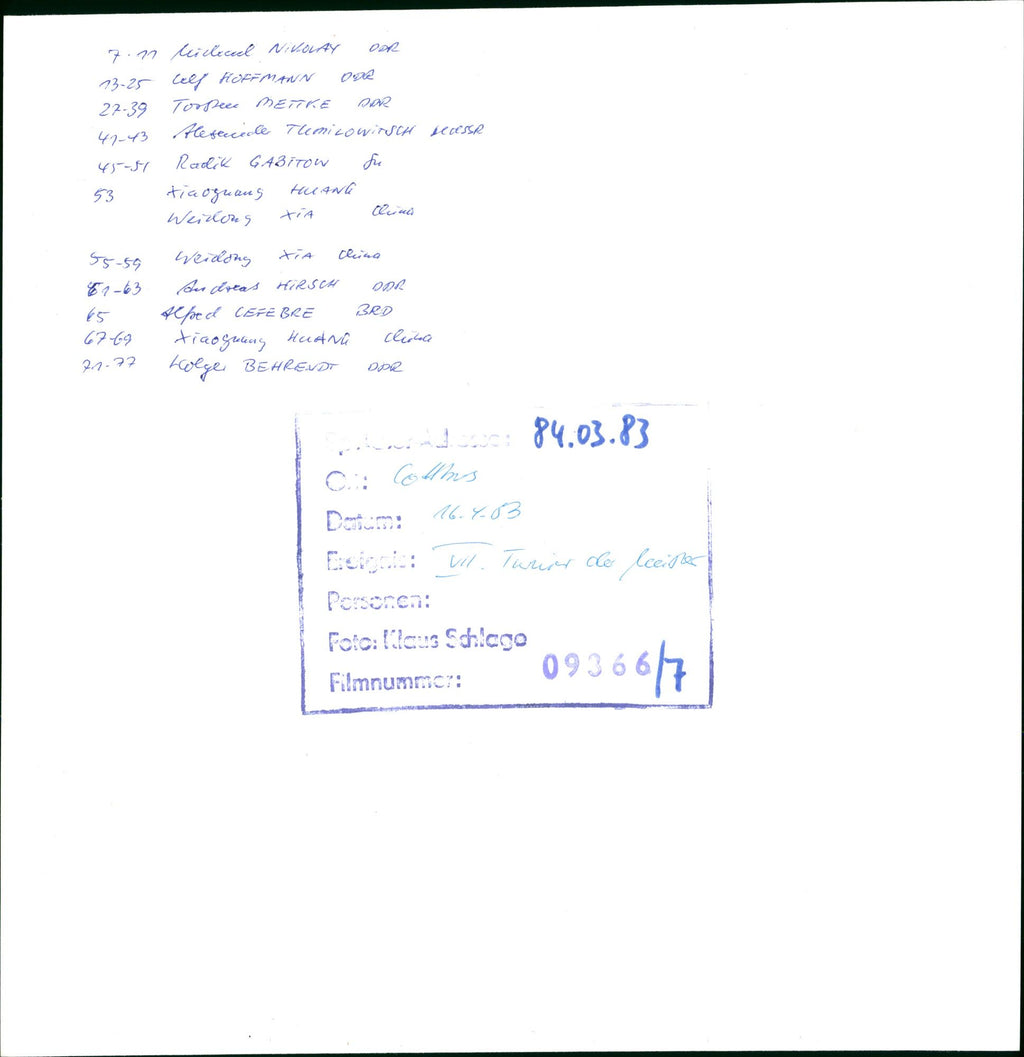 7-11 Michael NIKOLAY DDR
13-25 Ulf HOFFMANN DDR
27-39 Torsten METTKE DDR
41-43 Alexander TUMILOWITSCH UdSSR
45-51 Radik GABITOW Su
53 Xiaoguang HUANG
Weidong XIA China
55-59 Weidong XIA China
61-63 Andreas HIRSCH DDR
65 Alfred LEFEBRE BRD
67-69 Xiaoguang HUANG China
71-77 Holger BEHRENDT DDR
84.03.83
Ort: Cottbus
Datum: 16.4.83
Ereignis: VII. Turnier der Meister
Personen:
Foto: Klaus Schlage
Filmnummer: 09366/7